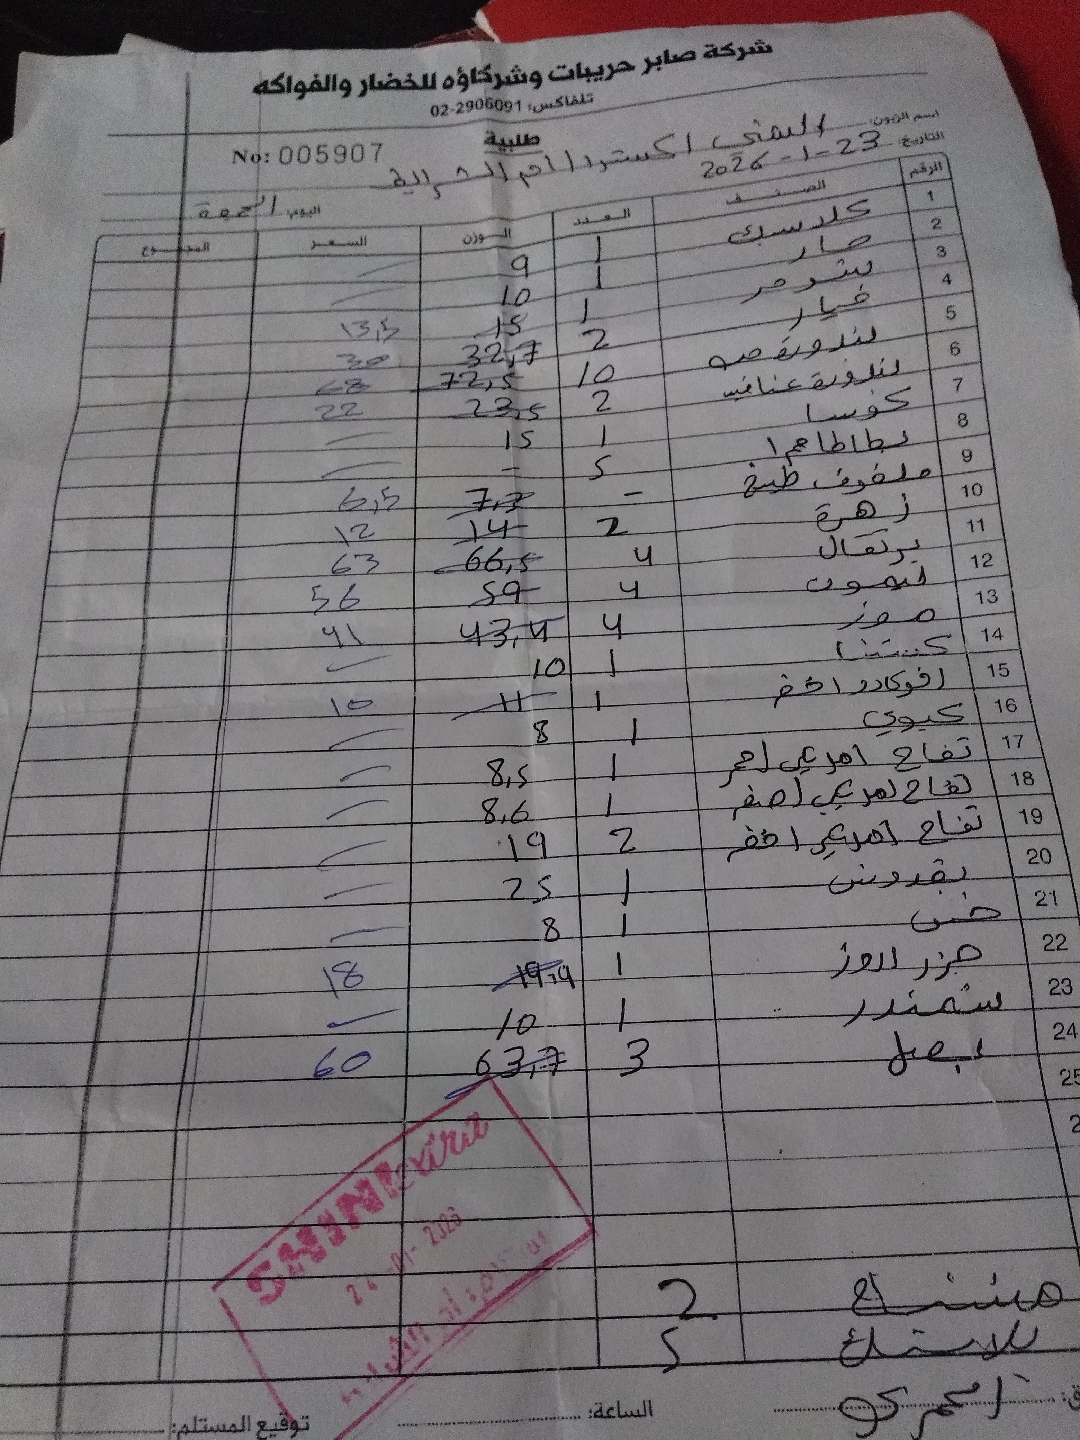 شركة صابر حريبات وشركاؤه للخضار والفواكه
تلفاكس: 02-2906091
طلبية
No: 005907
اسم الزبون: الشني اكسترا ام الشرايط
التاريخ: 23-1-2026
اليوم: الجمعة
الرقم الصنف العدد الوزن السعر المجموع
1 كلاسيك 1 9
2 حار 1 10
3 1 15 13,5
4 خيار 2 32,7 30
5 بندورة 10 72,5 68
6 بندورة عناقيد 2 23,5 22
7 كوسا 1 15
8 بطاطا 5 -
9 ملفوف طبيخ - 7,7 6,5
10 زهرة 2 14 12
11 برتقال 4 66,5 63
12 ليمون 4 59 56
13 موز 4 43,4 41
14 كستنا 1 10
15 افوكادو اخضر 1 11 10
16 كيوي 1 8
17 تفاح امريكي احمر 1 8,5
18 تفاح امريكي اصفر 1 8,6
19 تفاح امريكي اخضر 2 19
20 بقدونس 1 25
21 خس 1 8
22 جزر 1 19,9 18
23 شمندر 1 10
24 بصل 3 63,7 60
25
SHINI extra
24 -01- 2026
مشتاح 2
بلاستيك 5
الساعة:
توقيع المستلم: